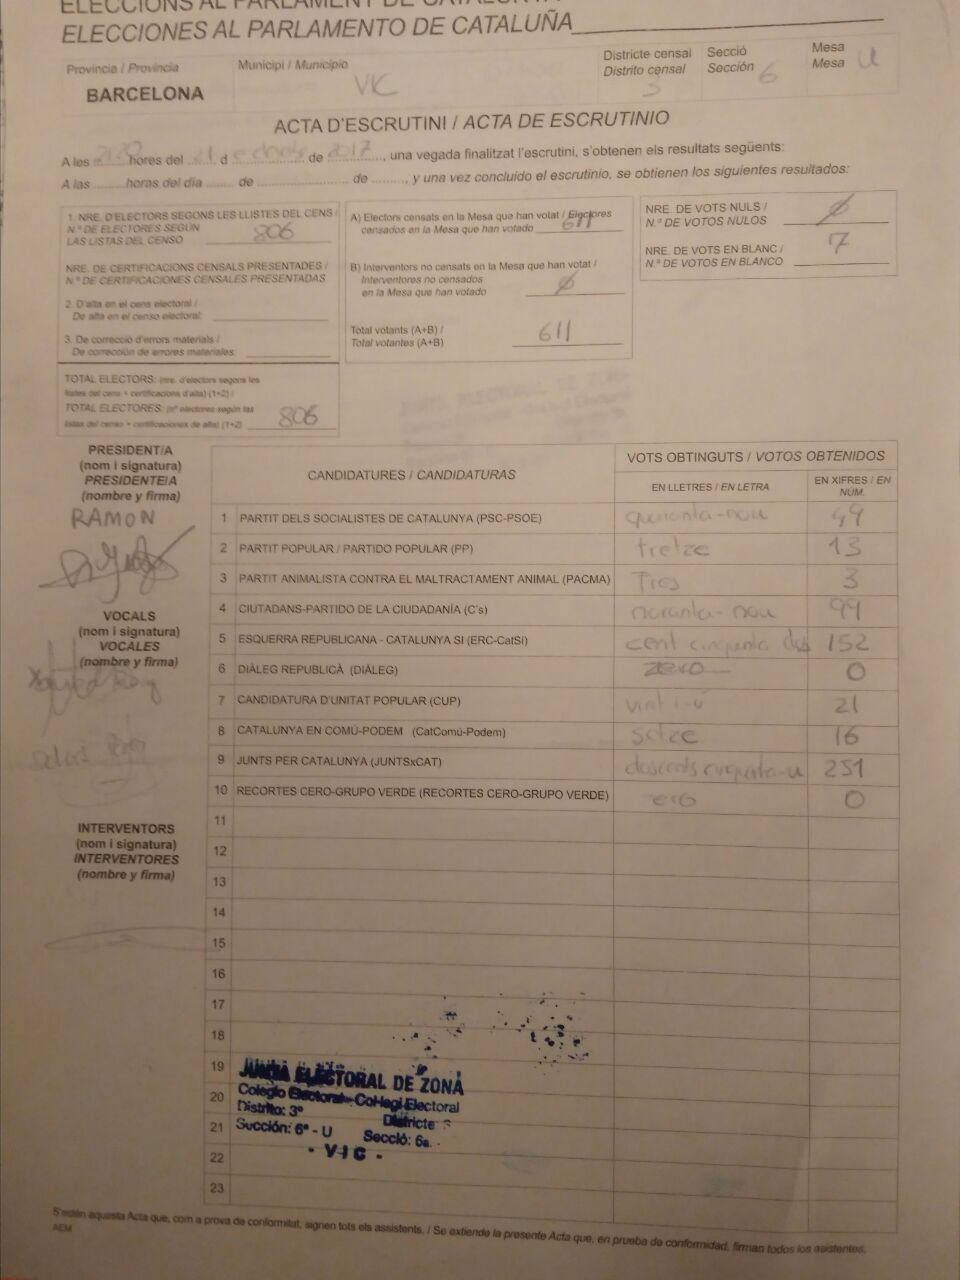 ELECCIONS AL PARLAMENT DE CATALUNYA
ELECCIONES AL PARLAMENTO DE CATALUÑA
Provincia / Provincia
BARCELONA
Municipi / Municipio
VIC
Districte censal
Distrito censal
3
Secció
Sección 6
Mesa
Mesa U
ACTA D'ESCRUTINI / ACTA DE ESCRUTINIO
A les 21:20 hores del 21 d de 2017, una vegada finalitzat l'escrutini, s'obtenen els resultats següents:
A las ........ horas del día ....... de ....................... de ........., y una vez concluido el escrutinio, se obtienen los siguientes resultados:
1. NRE. D'ELECTORS SEGONS LES LLISTES DEL CENS /
N.º DE ELECTORES SEGÚN
LAS LISTAS DEL CENSO 806
NRE. DE CERTIFICACIONS CENSALS PRESENTADES /
N.º DE CERTIFICACIONES CENSALES PRESENTADAS
2. D'alta en el cens electoral /
De alta en el censo electoral:
3. De correcció d'errors materials /
De corrección de errores materiales:
TOTAL ELECTORS: (nre. d'electors segons les
llistes del cens + certificacions d'alta) (1+2) /
TOTAL ELECTORES: (nº electores según las
listas del censo + certificaciones de alta) (1+2) 806
A) Electors censats en la Mesa que han votat / Electores
censados en la Mesa que han votado 611
B) Interventors no censats en la Mesa que han votat /
Interventores no censados
en la Mesa que han votado Ø
Total votants (A+B) /
Total votantes (A+B) 611
NRE. DE VOTS NULS /
N.º DE VOTOS NULOS Ø
NRE. DE VOTS EN BLANC /
N.º DE VOTOS EN BLANCO 7
PRESIDENT/A
(nom i signatura)
PRESIDENTE/A
(nombre y firma)
RAMON
VOCALS
(nom i signatura)
VOCALES
(nombre y firma)
INTERVENTORS
(nom i signatura)
INTERVENTORES
(nombre y firma)
CANDIDATURES / CANDIDATURAS
VOTS OBTINGUTS / VOTOS OBTENIDOS
EN LLETRES / EN LETRA
EN XIFRES / EN NÚM.
1 PARTIT DELS SOCIALISTES DE CATALUNYA (PSC-PSOE) quaranta-nou 49
2 PARTIT POPULAR / PARTIDO POPULAR (PP) tretze 13
3 PARTIT ANIMALISTA CONTRA EL MALTRACTAMENT ANIMAL (PACMA) Tres 3
4 CIUTADANS-PARTIDO DE LA CIUDADANÍA (C's) noranta-nou 99
5 ESQUERRA REPUBLICANA - CATALUNYA SÍ (ERC-CatSí) cent cinquanta dos 152
6 DIÀLEG REPUBLICÀ (DIÀLEG) zero 0
7 CANDIDATURA D'UNITAT POPULAR (CUP) vint-i-ú 21
8 CATALUNYA EN COMÚ-PODEM (CatComú-Podem) setze 16
9 JUNTS PER CATALUNYA (JUNTSxCAT) doscents cinquanta-u 251
10 RECORTES CERO-GRUPO VERDE (RECORTES CERO-GRUPO VERDE) 0
11
12
13
14
15
16
17
18
19
20
21
22
23
JUNTA ELECTORAL DE ZONA
Colegio Electoral - Col·legi Electoral
Distrito: 3º Districte 3
Sección: 6ª - U Secció: 6a.
- VIC -
S'estén aquesta Acta que, com a prova de conformitat, signen tots els assistents. / Se extiende la presente Acta que, en prueba de conformidad, firman todos los asistentes.
AEM